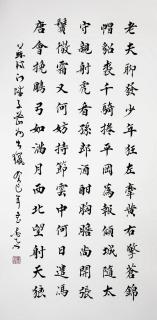 老夫聊發少年狂左牽黃右擎蒼錦
帽貂裘千騎捲平岡為報傾城隨太
守親射虎看孫郎酒酣胸膽尚開張
鬢微霜又何妨持節雲中何日遣馮
唐會挽鵰弓如滿月西北望射天狼
蘇軾江城子密州出獵癸巳年